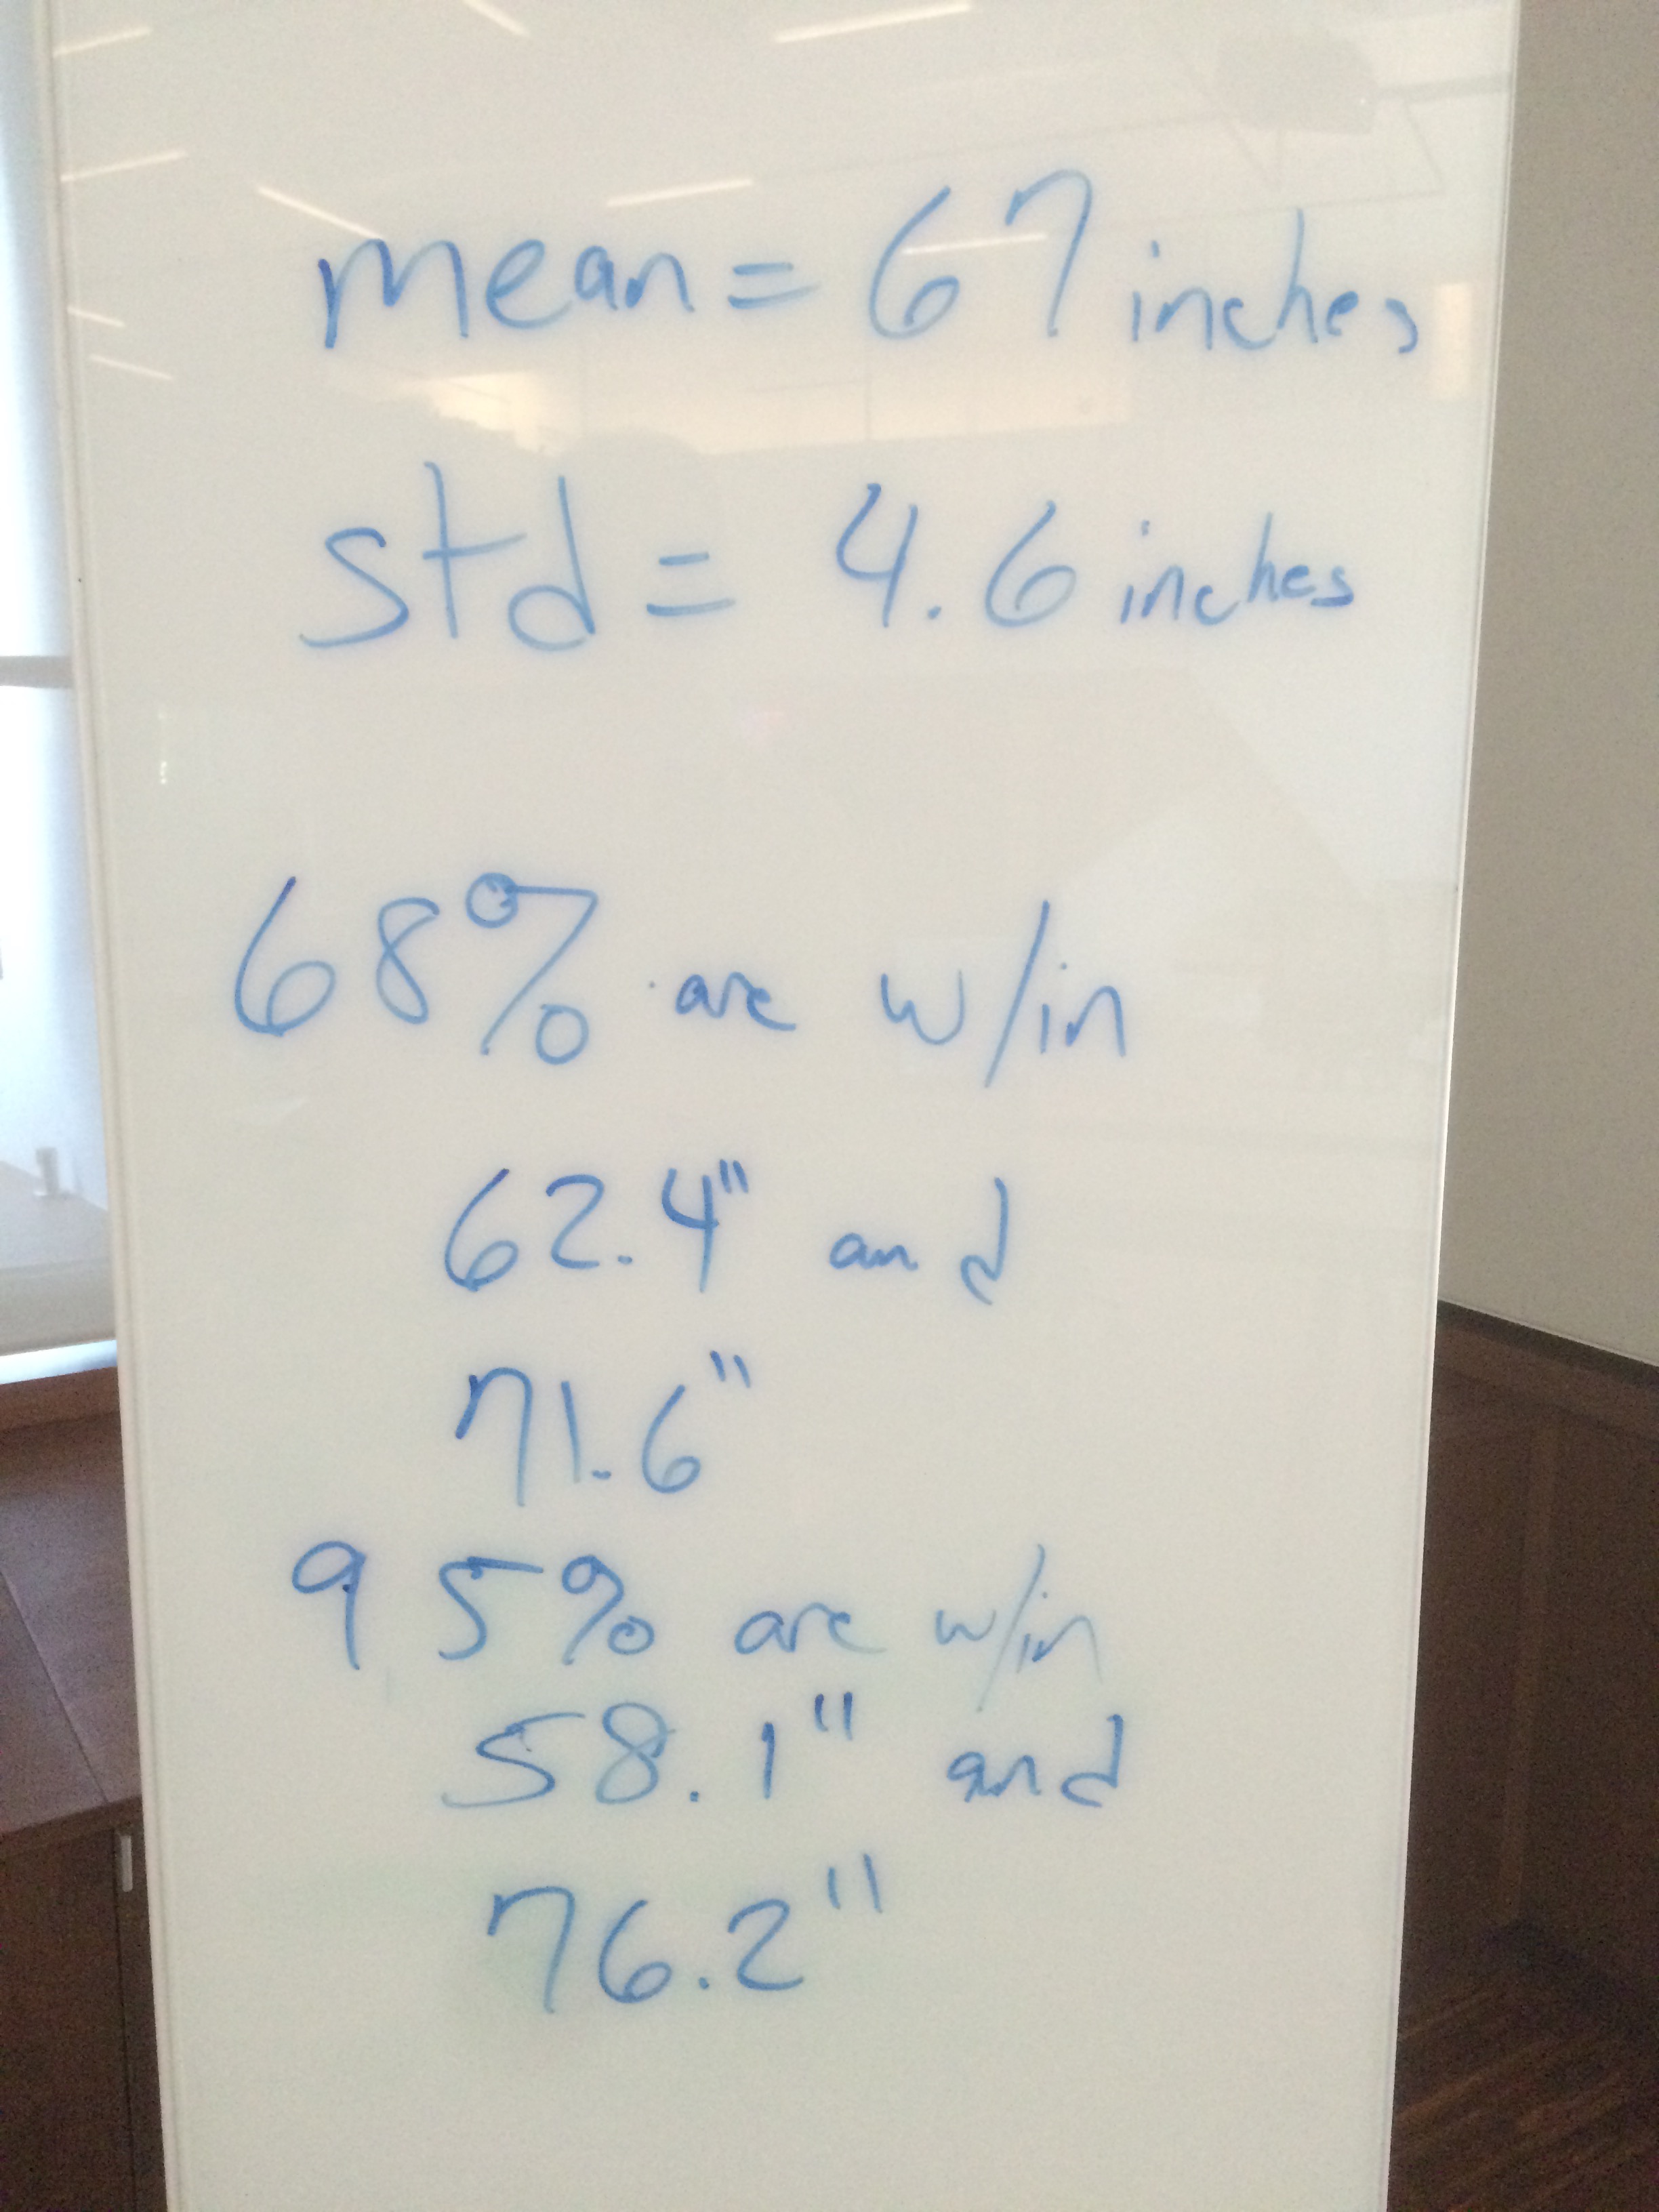 mean = 67 inches
std = 4.6 inches
68% are w/in
62.4" and
71.6"
95% are w/in
58.1" and
76.2"